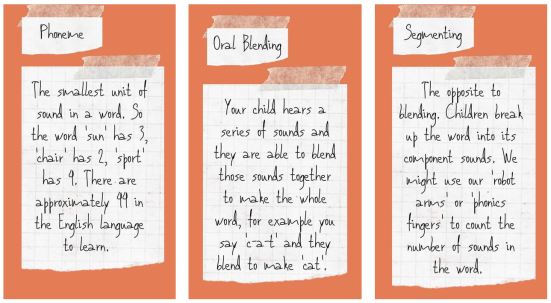 Phoneme
The smallest unit of
sound in a word. So
the word 'sun' has 3,
'chair' has 2, 'sport'
has 4. There are
approximately 44 in
the English language
to learn.
Oral Blending
Your child hears a
series of sounds and
they are able to blend
those sounds together
to make the whole
word, for example you
say 'c-a-t' and they
blend to make 'cat'.
Segmenting
The opposite to
blending. Children break
up the word into its
component sounds. We
might use our 'robot
arms' or 'phonics
fingers' to count the
number of sounds in
the word.